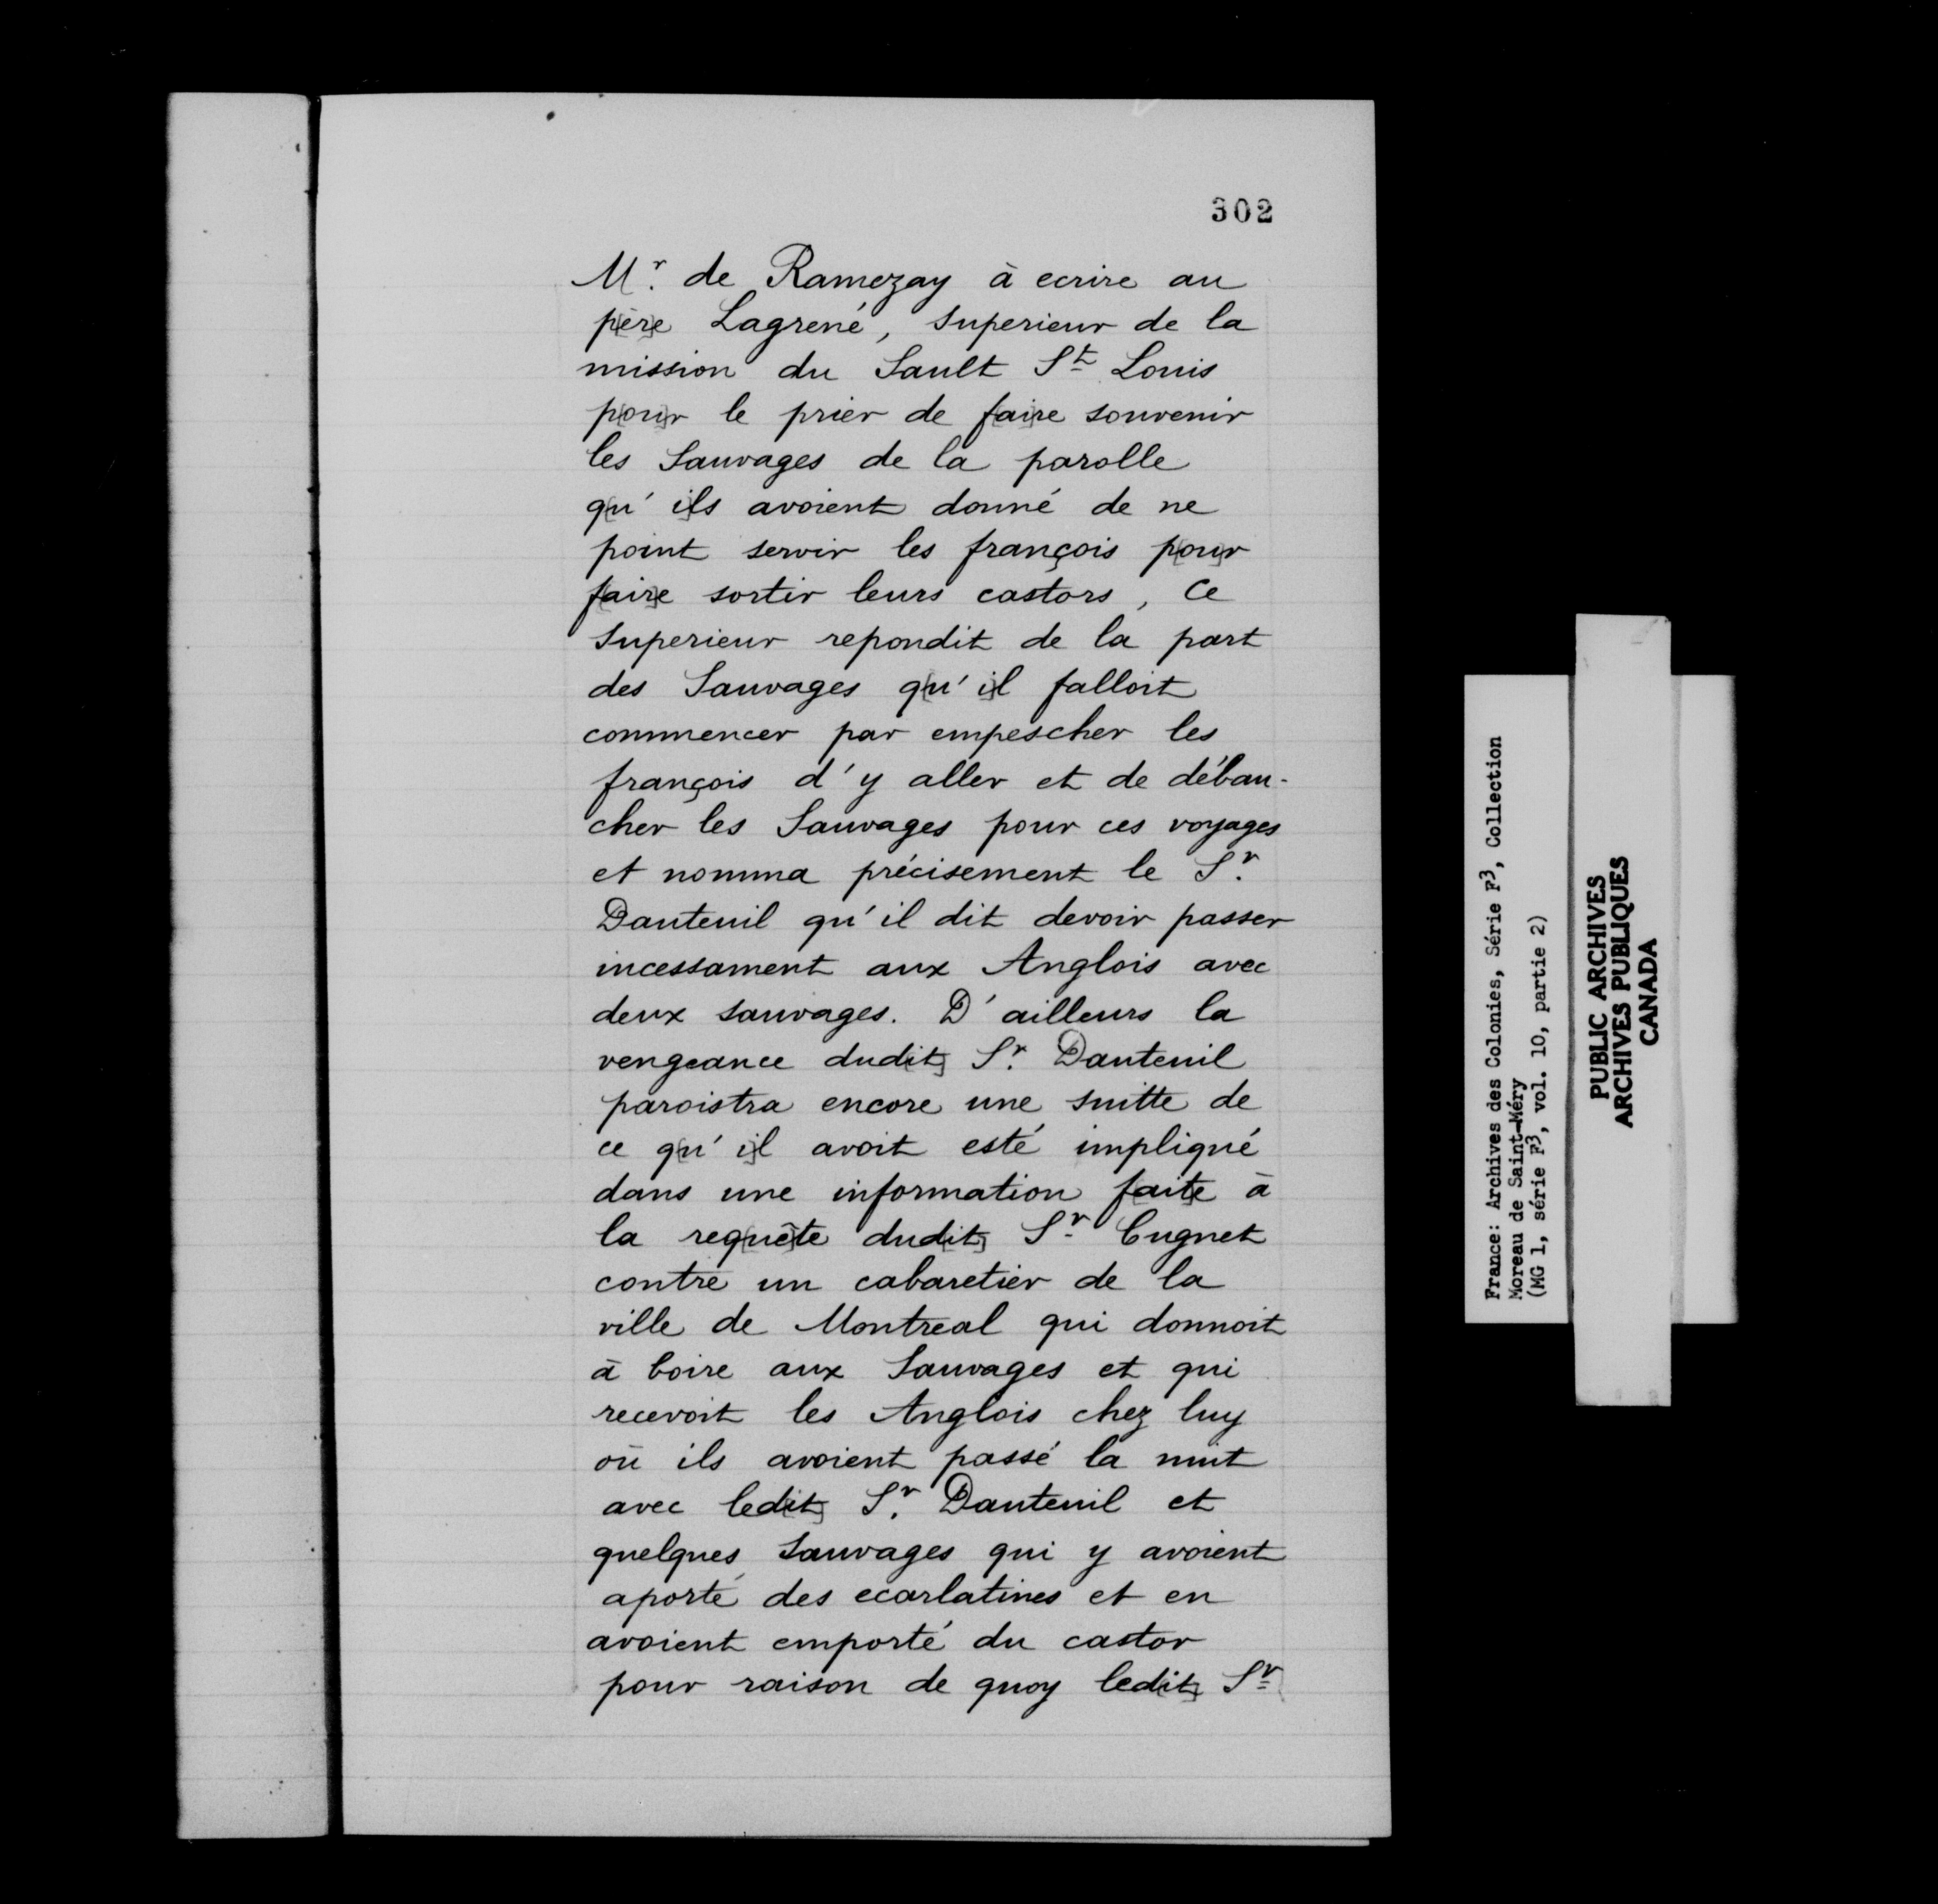 302
Mr. de Ramezay à ecrire au
p[èr]e Lagrené, superieur de la
mission du Sault St Louis
p[ou]r le prier de f[ai]re souvenir
les Sauvages de la parolle
q[u' i]ls avoient donné de ne
point servir les françois p[ou]r
f[air]e sortir leurs castors, Ce
superieur repondit de la part
des Sauvages q[u' i]l falloit
commencer par empescher les
françois d'y aller et de débau-
cher les Sauvages pour ces voyages
et nomma précisement le Sr.
Dauteuil qu'il dit devoir passer
incessament aux Anglois avec
deux sauvages. D'ailleurs la
vengeance dud[it] Sr. Dauteuil
paroistra encore une suitte de
ce q[u' i]l avoit esté impliqué
dans une information f[ait]e à
la req[uê]te dud[it] Sr Cugnet
contre un cabaretier de la
ville de Montreal qui donnoit
à boire aux Sauvages et qui
recevoit les Anglois chez luy
où ils avoient passé la nuit
avec led[it] Sr. Dauteuil et
quelques Sauvages qui y avoient
aporté des ecarlatines et en
avoient emporté du castor
pour raison de quoy led[it] Sr
France: Archives des Colonies, Série F3, Collection
Moreau de Saint-Méry
(MG 1, série F3, vol. 10, partie 2)
PUBLIC ARCHIVES
ARCHIVES PUBLIQUES
CANADA